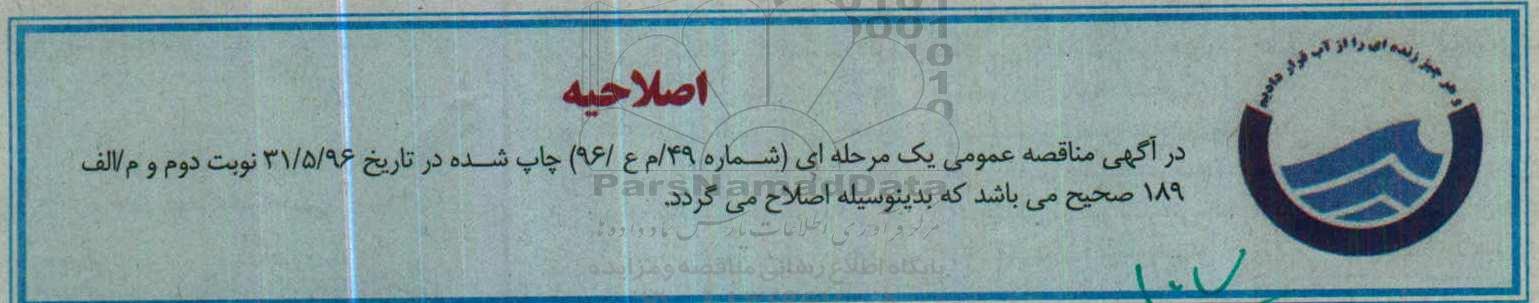 و هر چیز زنده ای را از آب قرار دادیم
اصلاحیه
در آگهی مناقصه عمومی یک مرحله ای (شــماره ۴۹/م ع /۹۶) چاپ شــده در تاریخ ۳۱/۵/۹۶ نوبت دوم و م/الف
۱۸۹ صحیح می باشد که بدینوسیله اصلاح می گردد.
ParsNamadData
مرکز فرآوری اطلاعات پارس نماد داده ها
پایگاه اطلاع رسانی مناقصه و مزایده
۱۰۷